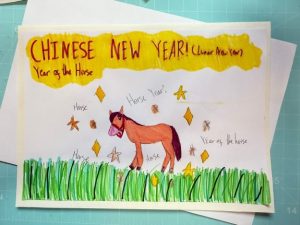 CHINESE NEW YEAR! (Lunar New Year)
Year of the Horse
Horse
Horse Year!
Horse
horse
Year of the horse